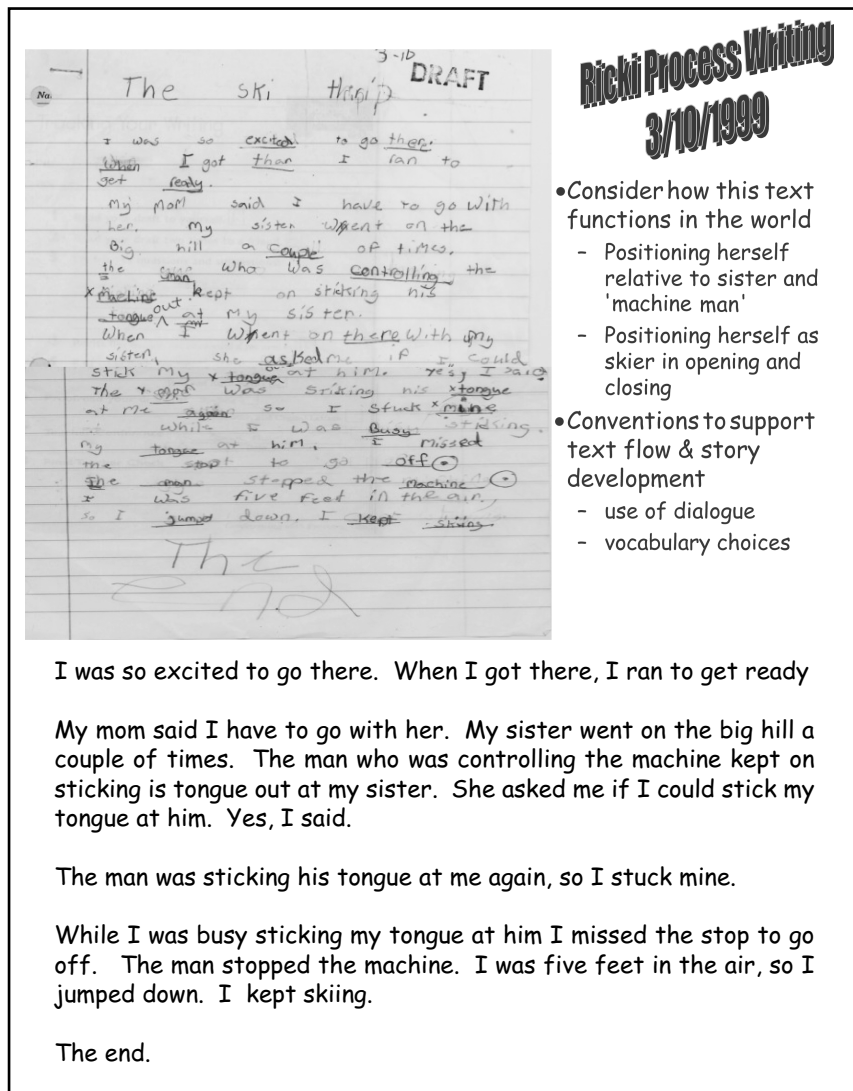 3-10
DRAFT
Na.
The ski
I was so excited to go there.
When I got than I ran to
get ready.
My Mom said I have to go with
her. my sister went on the
Big hill a couple of times.
the man who was controlling the
x machine kept on sticking his
tongue out at my sister.
When I went on there with my
sister, she asked me if I could
stick my x tongue at him. Yes, I said
The x man was stiking his x tongue
at me again so I stuck x mine
while I was Busy stiking
my tongue at him, I missed
the stop to go off.
The man stopped the machine.
I was five feet in the air,
so I jumped down. I kept skiing
The
End
Ricki Process Writing
3/10/1999
•Consider how this text
functions in the world
– Positioning herself
relative to sister and
'machine man'
– Positioning herself as
skier in opening and
closing
•Conventions to support
text flow & story
development
– use of dialogue
– vocabulary choices
I was so excited to go there. When I got there, I ran to get ready
My mom said I have to go with her. My sister went on the big hill a
couple of times. The man who was controlling the machine kept on
sticking is tongue out at my sister. She asked me if I could stick my
tongue at him. Yes, I said.
The man was sticking his tongue at me again, so I stuck mine.
While I was busy sticking my tongue at him I missed the stop to go
off. The man stopped the machine. I was five feet in the air, so I
jumped down. I kept skiing.
The end.